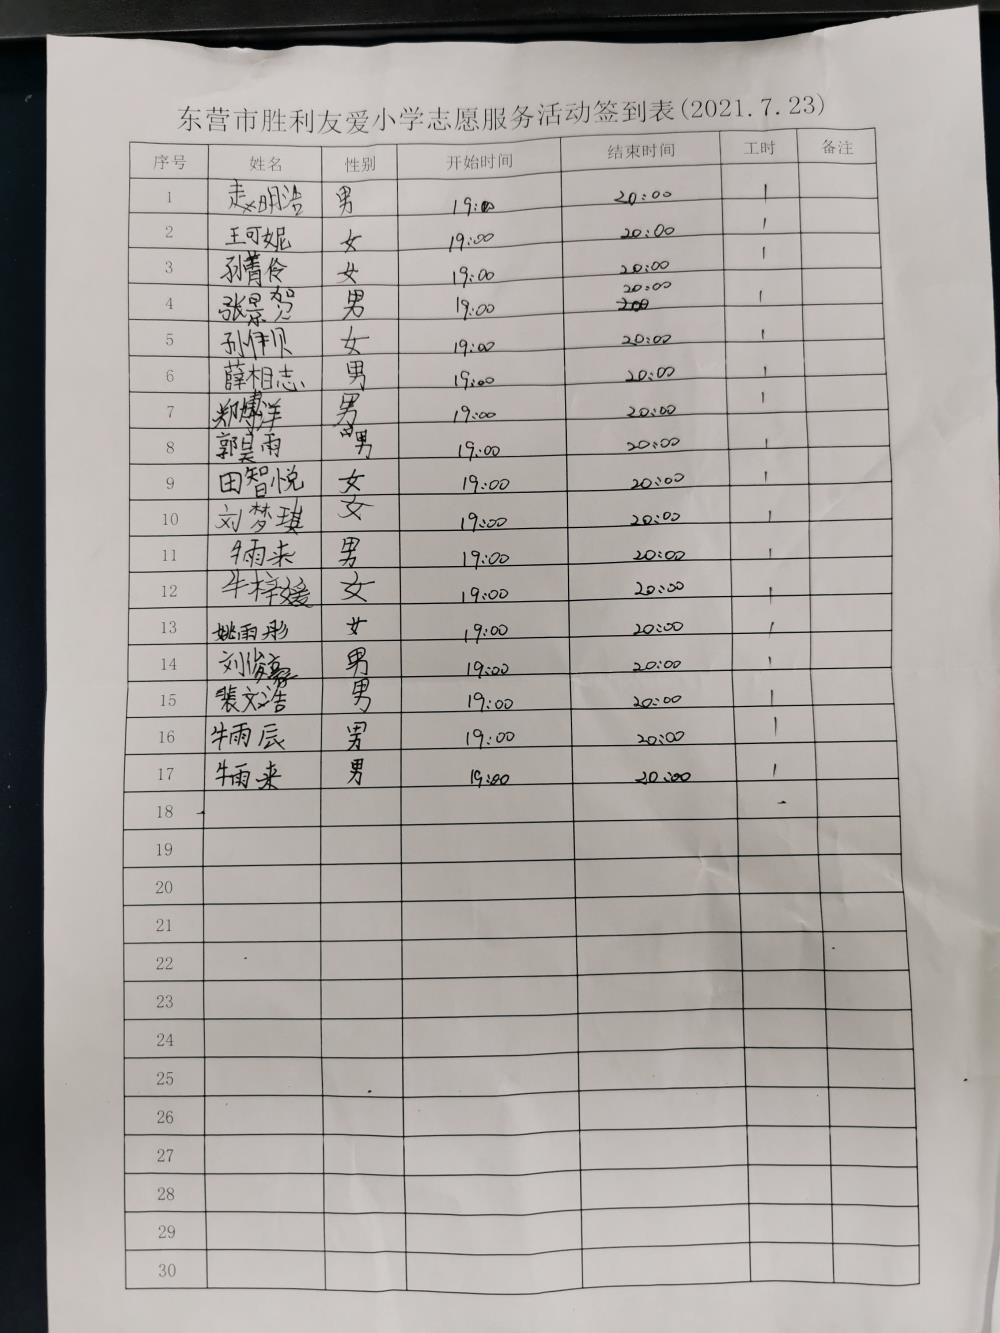 东营市胜利友爱小学志愿服务活动签到表(2021.7.23)
序号 姓名 性别 开始时间 结束时间 工时 备注
1 赵明浩 男 19:00 20:00 1
2 王可妮 女 19:00 20:00 1
3 孙菁伶 女 19:00 20:00 1
4 张景贺 男 19:00 20:00 1
5 孙伊贝 女 19:00 20:00 1
6 薛相志 男 19:00 20:00 1
7 郑博洋 男 19:00 20:00 1
8 郭昊雨 男 19:00 20:00 1
9 田智悦 女 19:00 20:00 1
10 刘梦琪 女 19:00 20:00 1
11 牛雨来 男 19:00 20:00 1
12 牛梓媛 女 19:00 20:00 1
13 姚雨彤 女 19:00 20:00 1
14 刘俊 男 19:00 20:00 1
15 裴文浩 男 19:00 20:00 1
16 牛雨辰 男 19:00 20:00 1
17 牛雨来 男 19:00 20:00 1
18
19
20
21
22
23
24
25
26
27
28
29
30